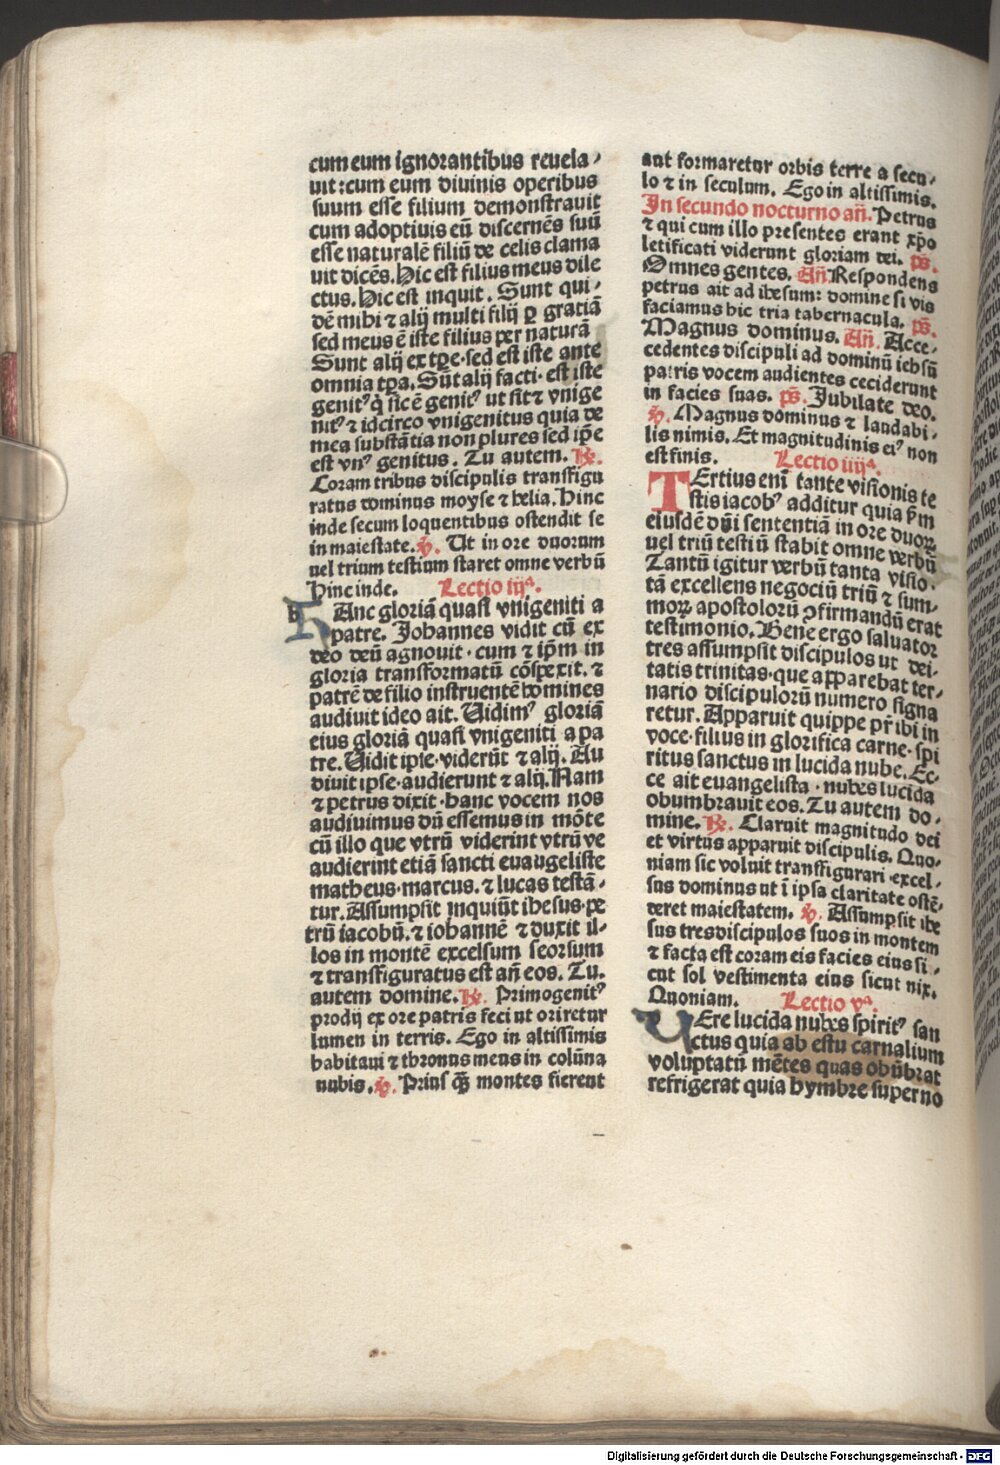 cum eum ignorantibus reuela⸗
uit: cum eum diuinis operibus
suum esse filium demonstrauit
cum adoptiuis eū discernēs suū
esse naturalē filiū de celis clama
uit dicēs. Hic est filius meus dile
ctus. Hic est inquit. Sunt qui⸗
dē mihi ⁊ alij multi filij ꝑ gratiā
sed meus ē iste filius per naturā
Sunt alij ex tp̄e · sed est iste ante
omnia tp̄a. Sūt alij facti · est iste
genitꝰ q̄ sic ē genitꝰ ut sit ⁊ vnige
nitꝰ ⁊ idcirco vnigenitus quia de
mea substātia non plures sed ip̄e
est vnꝰ genitus. Tu autem. ℟.
Coram tribus discipulis transfigu
ratus dominus moyse ⁊ helia. Hinc
inde secum loquentibus ostendit se
in maiestate. ℣. Ut in ore duorum
uel trium testium staret omne verbū
Hinc inde. Lectio iijᵃ.
Hanc gloriā quasi vnigeniti a
patre. Johannes vidit cū ex
deo deū agnouit · cum ⁊ ip̄m in
gloria transformatū cōspexit. ⁊
patrē de filio instruentē homines
audiuit ideo ait. Uidimꝰ gloriā
eius gloriā quasi vnigeniti a pa
tre. Uidit ipse · viderūt ⁊ alij. Au
diuit ipse · audierunt ⁊ alij. Nam
⁊ petrus dixit · hanc vocem nos
audiuimus dū essemus in mōte
cū illo que vtrū viderint vtrū ve
audierint etiā sancti euaugeliste
matheus · marcus. ⁊ lucas testā⸗
tur. Assumpsit inquiūt ihesus · pe
trū iacobū. ⁊ iohannē ⁊ duxit il⸗
los in montē excelsum seorsum
⁊ transfiguratus est añ eos. Tu.
autem domine. ℟. Primogenitꝰ
prodij ex ore patris feci ut oriretur
lumen in terris. Ego in altissimis
habitaui ⁊ thronus meus in colūna
nubis. ℣. Priusꝗ̄ montes fierent
aut formaretur orbis terre a secu⸗
lo ⁊ in seculum. Ego in altissimis.
In secundo nocturno añ. Petrus
⁊ qui cum illo presentes erant xp̄o
letificati viderunt gloriam dei. ps̄.
Omnes gentes. Añ. Respondens
petrus ait ad ihesum: domine si vis
faciamus hic tria tabernacula. ps̄.
Magnus dominus. Añ. Acce⸗
cedentes discipuli ad dominū iehsū
patris vocem audientes ceciderunt
in facies suas. ps̄. Jubilate deo.
℣. Magnus dominus ⁊ laudabi⸗
lis nimis. Et magnitudinis eiꝰ non
est finis. Lectio iiijᵃ.
TErtius enī tante visionis te
stis iacobꝰ additur quia ꝑm
eiusdē dñi sententiā in ore duoꝝ
uel triū testiū stabit omne verbū
Tantū igitur verbū tanta visio⸗
tā excellens negociū triū ⁊ sum⸗
moꝝ apostolorū ꝯfirmandū erat
testimonio. Bene ergo saluator
tres assumpsit discipulos ut dei⸗
tatis trinitas · que apparebat ter⸗
nario discipulorū numero signa
retur. Apparuit quippe pr̄ ibi in
voce · filius in glorifica carne · spi
ritus sanctus in lucida nube. Ec⸗
ce ait euangelista · nubes lucida
obumbrauit eos. Tu autem do⸗
mine. ℟. Claruit magnitudo dei
et virtus apparuit discipulis. Quo⸗
niam sic voluit transfigurari · excel⸗
sus dominus ut ī ipsa claritate ostē⸗
deret maiestatem. ℣. Assumpsit ihe
sus tres discipulos suos in montem
⁊ facta est coram eis facies eius si⸗
cut sol vestimenta eius sicut nix.
Quoniam. Lectio vᵃ.
VEre lucida nubes spiritꝰ san
ctus quia ab estu carnalium
voluptatū mētes quas obūbrat
refrigerat quia hymbre superno
Digitalisierung gefördert durch die Deutsche Forschungsgemeinschaft - DFG